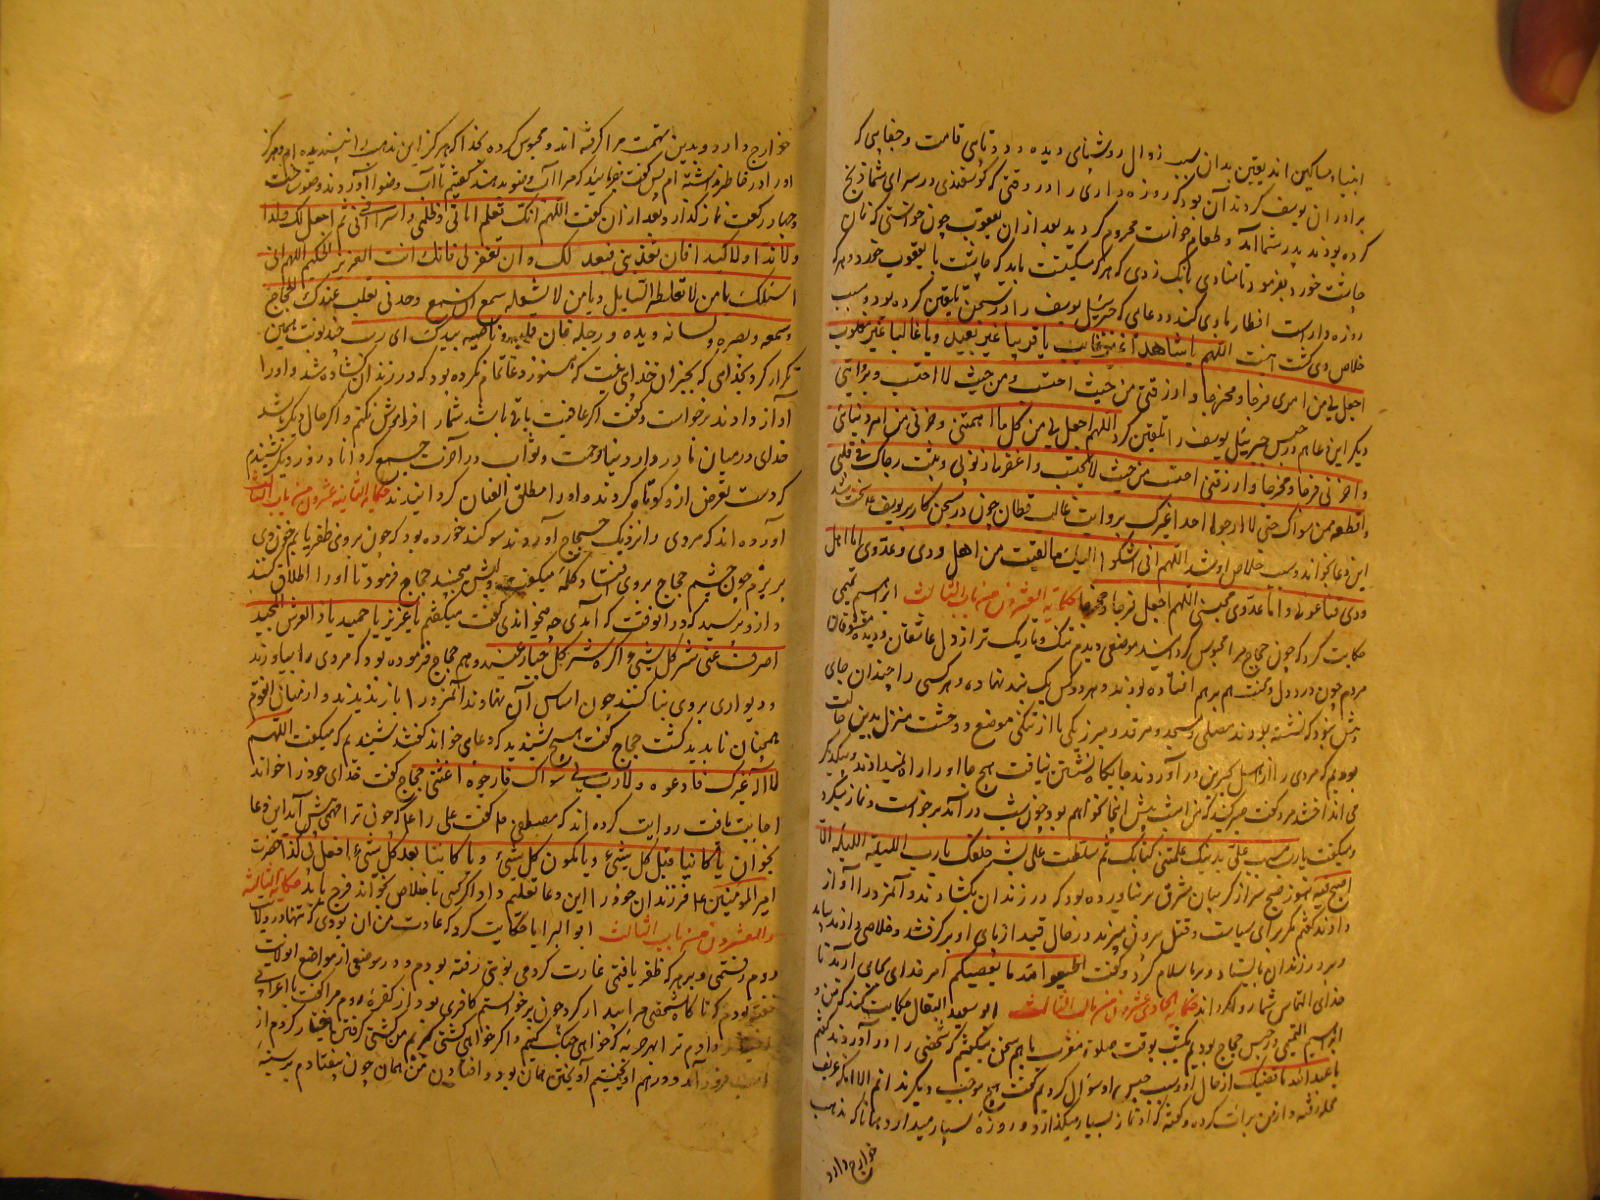 انبیاء و مساکین اند یقین بدان سبب زوال روشنای دیده و دوتای قامت و جفایی که
برادران یوسف کردند آن بود که روزه داری را در وقتی که گوسفندی در سرای شما ذبح
کرده بودند بدر شما آمد و طعام خواست محروم کردید بعد از ان یعقوب چون خواستی که نان
چاشت خورد بفرمود تا منادی بانک زدی که هر که مسکینست باید که چاشت با یعقوب خورد و هر که
روزه دارست افطار با وی کند و دعای که جبرئیل یوسف را در سجن تلقین کرده بود و سبب
خلاص وی گشت اینست اللهم یا شاهدا غیر غایب یا قریبا غیر بعید و یا غالبا غیر مغلوب
اجعل لی من امری فرجا و مخرجا و ارزقنی من حیث احتسب و من حیث لا احتسب و بروایتی
دیگر این دعا هم در حبس جبرئیل یوسف را تلقین کرد اللهم اجعل لی من کل ما اهمنی و حزنی من امر دنیای
و اخرتی فرجا و مخرجا و ارزقنی من حیث لا احتسب و اغفر لی ذنوبی و ثبت رجاک فی قلبی
و اقطعه ممن سواک حتی لا ارجوا احدا غیرک بروایت غالب قطان چون در سجن کار بر یوسف سخت شد
این دعا بخواند و سبب خلاص او شد اللهم انی اشکو الیک ما لقیت من اهل ودی و عدوی اما اهل
ودی فباعونی و اما عدوی فحبسنی اللهم اجعل لی فرجا و مخرجا حکایة العشرون من باب الثالث ابرهیم تمیمی
حکایت کرد که چون حجاج مرا محبوس گردانید موضعی دیدم تنک و تاریک تر از دل عاشقان و دیده مشتاقان
مردم چون درد دل و محنت هم بر هم افتاده بودند و هر دو کس یک بند نهاده و هر کسی را چندان جای
بیش نبود که نشسته بودند مصلی و مسجد و مرقد و مبرز یکی با از تنکی موضع و وحشت منزل بدین حالت
بودیم که مردی را از اهل بحرین در آوردند جایگاه نشستن نیافت هیچ جا او را راه نمیدادند و بیکدیگر
می انداختند مرد گفت صبر کنید که من امشب پیش اینجا نخواهم بود چون شب در آمد برخواست و نماز میکرد
و میگفت یا رب مننت علی بدینک علمتنی کتابک ثم سلطت علی شر خلقک یا رب اللیلة اللیلة لا
اصبح فیه هنوز صبح سر از گریبان مشرق بر نیاورده بود که در زندان بکشادند و آن مرد را آواز
دادند گفتم مگر برای سیاست و قتل بیرون میبرند در حال قید از پای او بر گرفتند و خلاصی دادند بیامد
و بر در زندان بایستاد و بر ما سلام کرد و گفت اطیعوا الله و لا تعصیکم امر خدای بجای آرند تا
خدای التماس شما روا گرداند حکایة الحادی عشرون من باب الثالث ابو سعید البقال حکایت کند که من و
ابرهیم التیمی در حبس حجاج بودیم یک شب بوقت صلوة مغرب با هم سخن میگفتیم که شخصی را در آوردند گفتم
یا عبد الله ما قضیتک از حال او و سبب حبس او سؤال کردیم گفت هیچ موجب دیگر ندانم الا آنکه عریف
محله رفته و از من برات کرده و گفته که او نماز بسیار میگذارد و روزه بسیار میدارد همانا که مذهب
خوارج دارد
خوارج دارد و بدین تهمت مرا گرفته اند و محبوس کرده بخدا که هرگز این مذهب را نپسندیده ام و هرگز
او را در خاطر نداشته ام پس گفت بفرمایید که مرا آب وضو بدهند گفتیم تا آب وضو آوردند وضو ساخت
و چهار رکعت نماز گذارد بعد از ان گفت اللهم انک تعلم اسائتی و ظلمی و اسرافی ثم اجعل لک ولدا
ولا ندا ولا کیدا فان تعذبنی فبعد لک و ان تغفر لی فانک انت العزیز الحکیم اللهم انی
اسئلک یا من لا تغلطه السایل و یا من لا یشغله سمع عن سمع وحدنی یغلب عبدک الحجاج
و سمعه و بصره و لسانه و یده و رجله فان قلبه و ناصیته بیدک ای رب چند نوبت همین
تکرار کرد بخدایی که بجز ان خدای نیست که هنوز دعا تمام نکرده بود که در زندان کشاده شد و او را
آواز دادند برخواست و گفت اگر عافیت باقی باشد شمار ا فراموش نکنم و اگر حال دیگر باشد
خدای در میان ما در دار دنیا و رحمت و ثواب در آخرت جمع گرداناد روز دیگر شنیدم
که دست تعرض از و کوتاه کردند و او را مطلق العنان گردانیدند حکایة الثانیه عشرون من باب الثالث
آورده اند که مردی را نزدیک حجاج آوردند سوکند خورده بود که چون بر وی ظفر یابم خون وی
بریزم چون چشم حجاج بر وی افتاد کلمة میگفت و لبش میجنبید حجاج فرمود تا او را اطلاق کنند
و از و پرسید که در انوقت که آمدی چه میخواندی گفت میگفتم یا عزیز یا حمید یا ذا العرش المجید
اصرف عنی شر کل شیء اکره و شر کل جبار عنید و هم حجاج فرموده بود که مردی را بیاورند
و دیواری بر وی بنا کنند چون اساس آن نهادند آنمرد را باز ندیدند و از میانه القوم
همچنان ناپدید گشت حجاج گفت هیچ شنیدید که دعای خواند گفتند شنیدیم که میگفت اللهم
لا اله غیرک فادعوه ولا رب لی سواک فارجوه اغثنی حجاج گفت خدای خود را خواند
اجابت یافت روایت کرده اند که مصطفی ۴ گفت علی را ۴ که چون ترا مهمی پیش آید این دعا
بخوان یا کائنا قبل کل شیء و یا مکون کل شیء و یا کائنا بعد کل شیء افعل بی کذا حضرت
امیر المؤمنین ۴ فرزندان خود را این دعا تعلیم داد هر کس با خلاص بخواند فرج یابد حکایة الثالثه
والعشرون من باب الثالث ابو البرایا حکایت کرد که عادت من ان بودی که تنها در ولایت
روم رفتمی و بر هر که ظفر یافتمی غارت کردمی نوبتی رفته بودم و در موضعی از مواضع او لایت
خفته بودم که ناکاه شخصی مرا بیدار کرد چون برخواستم کافری بود از کفره روم مرا گفت یا اعرابی
دادم ترا بهر چه که خواهی جنک کنیم و اگر خواهی کشتی گیریم من کشتی گرفتن اختیار کردم از
فرود آمد و در هم آویختیم آویختن همان بود و افتادن من همان چون بیفتادم بر سینه